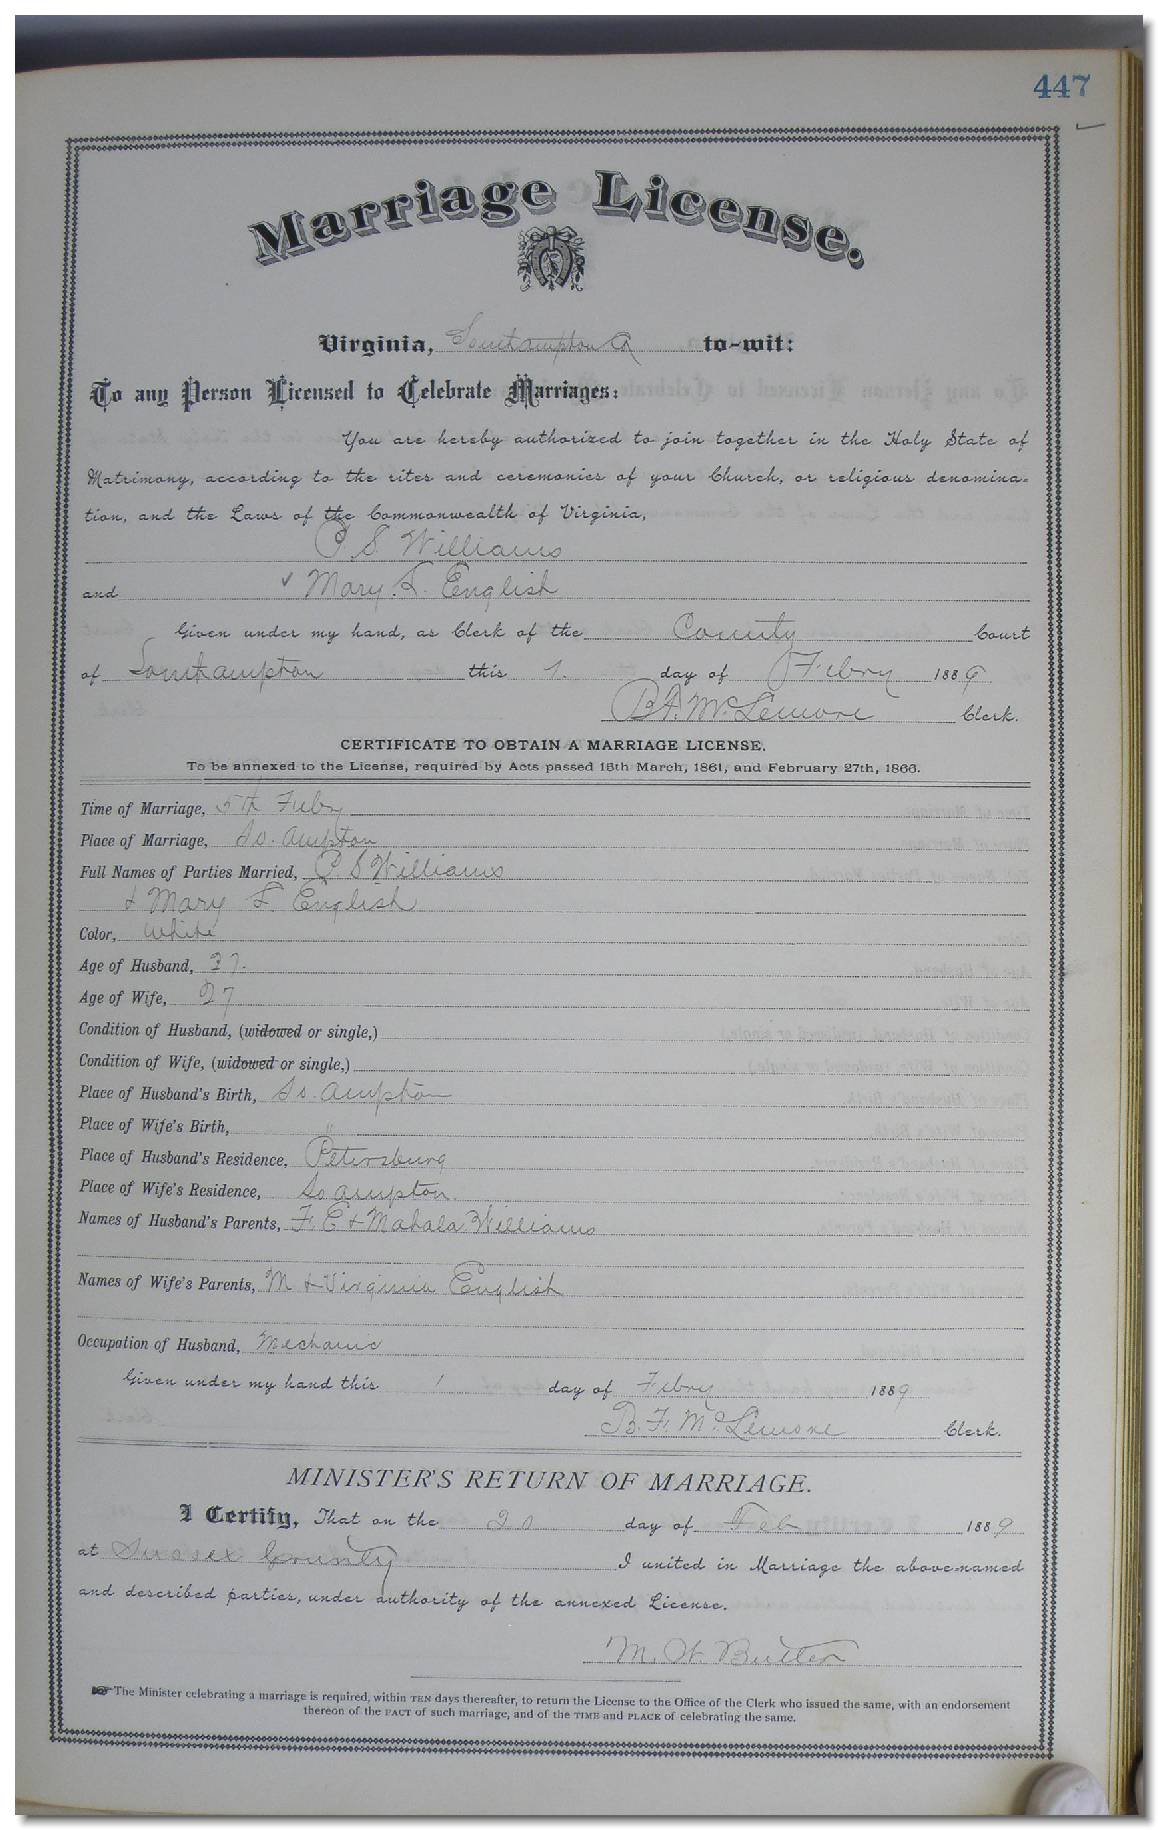 447
Marriage License.
Virginia, Southampton Co to-wit:
To any Person Licensed to Celebrate Marriages:
You are hereby authorized to join together in the Holy State of
Matrimony, according to the rites and ceremonies of your Church, or religious denomina-
tion, and the Laws of the Commonwealth of Virginia,
P S Williams
and Mary F. English
Given under my hand, as Clerk of the County Court
of Southampton this 1. day of Febry 1889
B.F. McLemore Clerk.
CERTIFICATE TO OBTAIN A MARRIAGE LICENSE.
To be annexed to the License, required by Acts passed 15th March, 1861, and February 27th, 1866.
Time of Marriage, 5th Febry
Place of Marriage, So. ampton
Full Names of Parties Married, P S Williams
& Mary F. English
Color, White
Age of Husband, 27.
Age of Wife, 27
Condition of Husband, (widowed or single,)
Condition of Wife, (widowed or single,)
Place of Husband's Birth, So. ampton
Place of Wife's Birth, "
Place of Husband's Residence, Petersburg
Place of Wife's Residence, So ampton.
Names of Husband's Parents, F. E & Mahala Williams
Names of Wife's Parents, M & Virginia English
Occupation of Husband, Mechanic
Given under my hand this 1 day of Febry 1889
B. F. McLemore Clerk.
MINISTER'S RETURN OF MARRIAGE.
I Certify, That on the day of Feb 1889
at Sussex County I united in Marriage the above-named
and described parties, under authority of the annexed License.
M. W. Butler
The Minister celebrating a marriage is required, within TEN days thereafter, to return the License to the Office of the Clerk who issued the same, with an endorsement
thereon of the FACT of such marriage, and of the TIME and PLACE of celebrating the same.